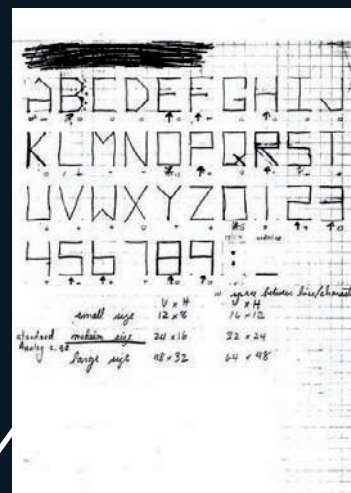 ABCDEFGHIJ
KLMNOPQRST
UVWXYZ0123
456789:_
w space between lines/characters
V x H V x H
small size 12 x 8 16 x 12
standard medium size 24 x 16 32 x 24
large size 48 x 32 64 x 48